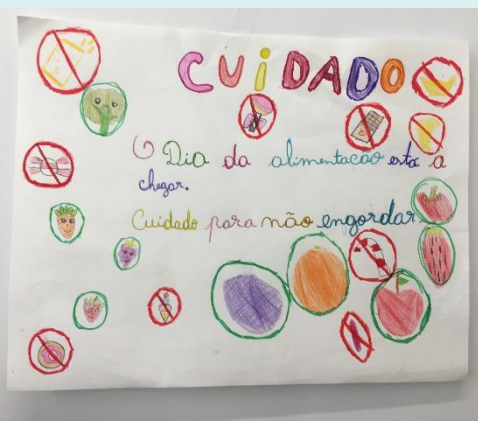 CUIDADO
O Dia da alimentacao esta a
chegar.
Cuidado para não engordar